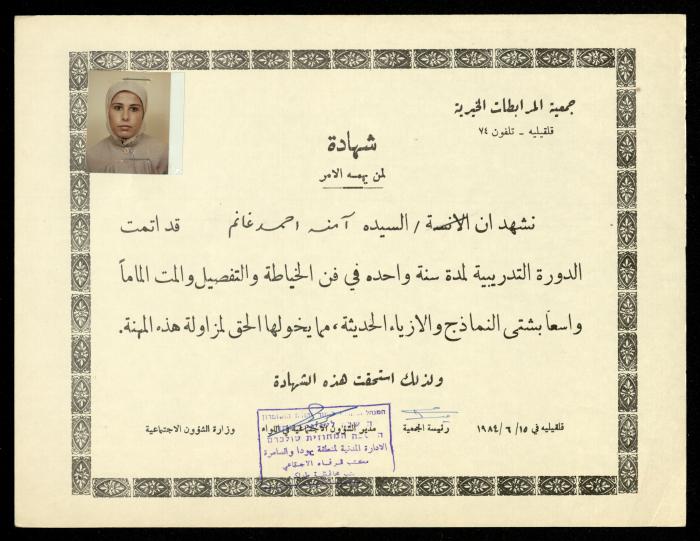 جمعية المرابطات الخيرية
قلقيليه - تلفون ٧٤
شهادة
لمن يهمه الامر
نشهد ان الانسة / السيده آمنه احمد غانم قد اتمت
الدورة التدريبية لمدة سنة واحده في فن الخياطة والتفصيل والمت الماماً
واسعاً بشتى النماذج والازياء الحديثة، مما يخولها الحق لمزاولة هذه المهنة.
ولذلك استحقت هذه الشهادة
قلقيليه في ١٩٨٤/٦/١٥ رئيسة الجمعية مدير الشؤون الاجتماعية في اللواء وزارة الشؤون الاجتماعية
الادارة المدنية لمنطقة يهودا والسامرة
مكتب الرفاه الاجتماعي